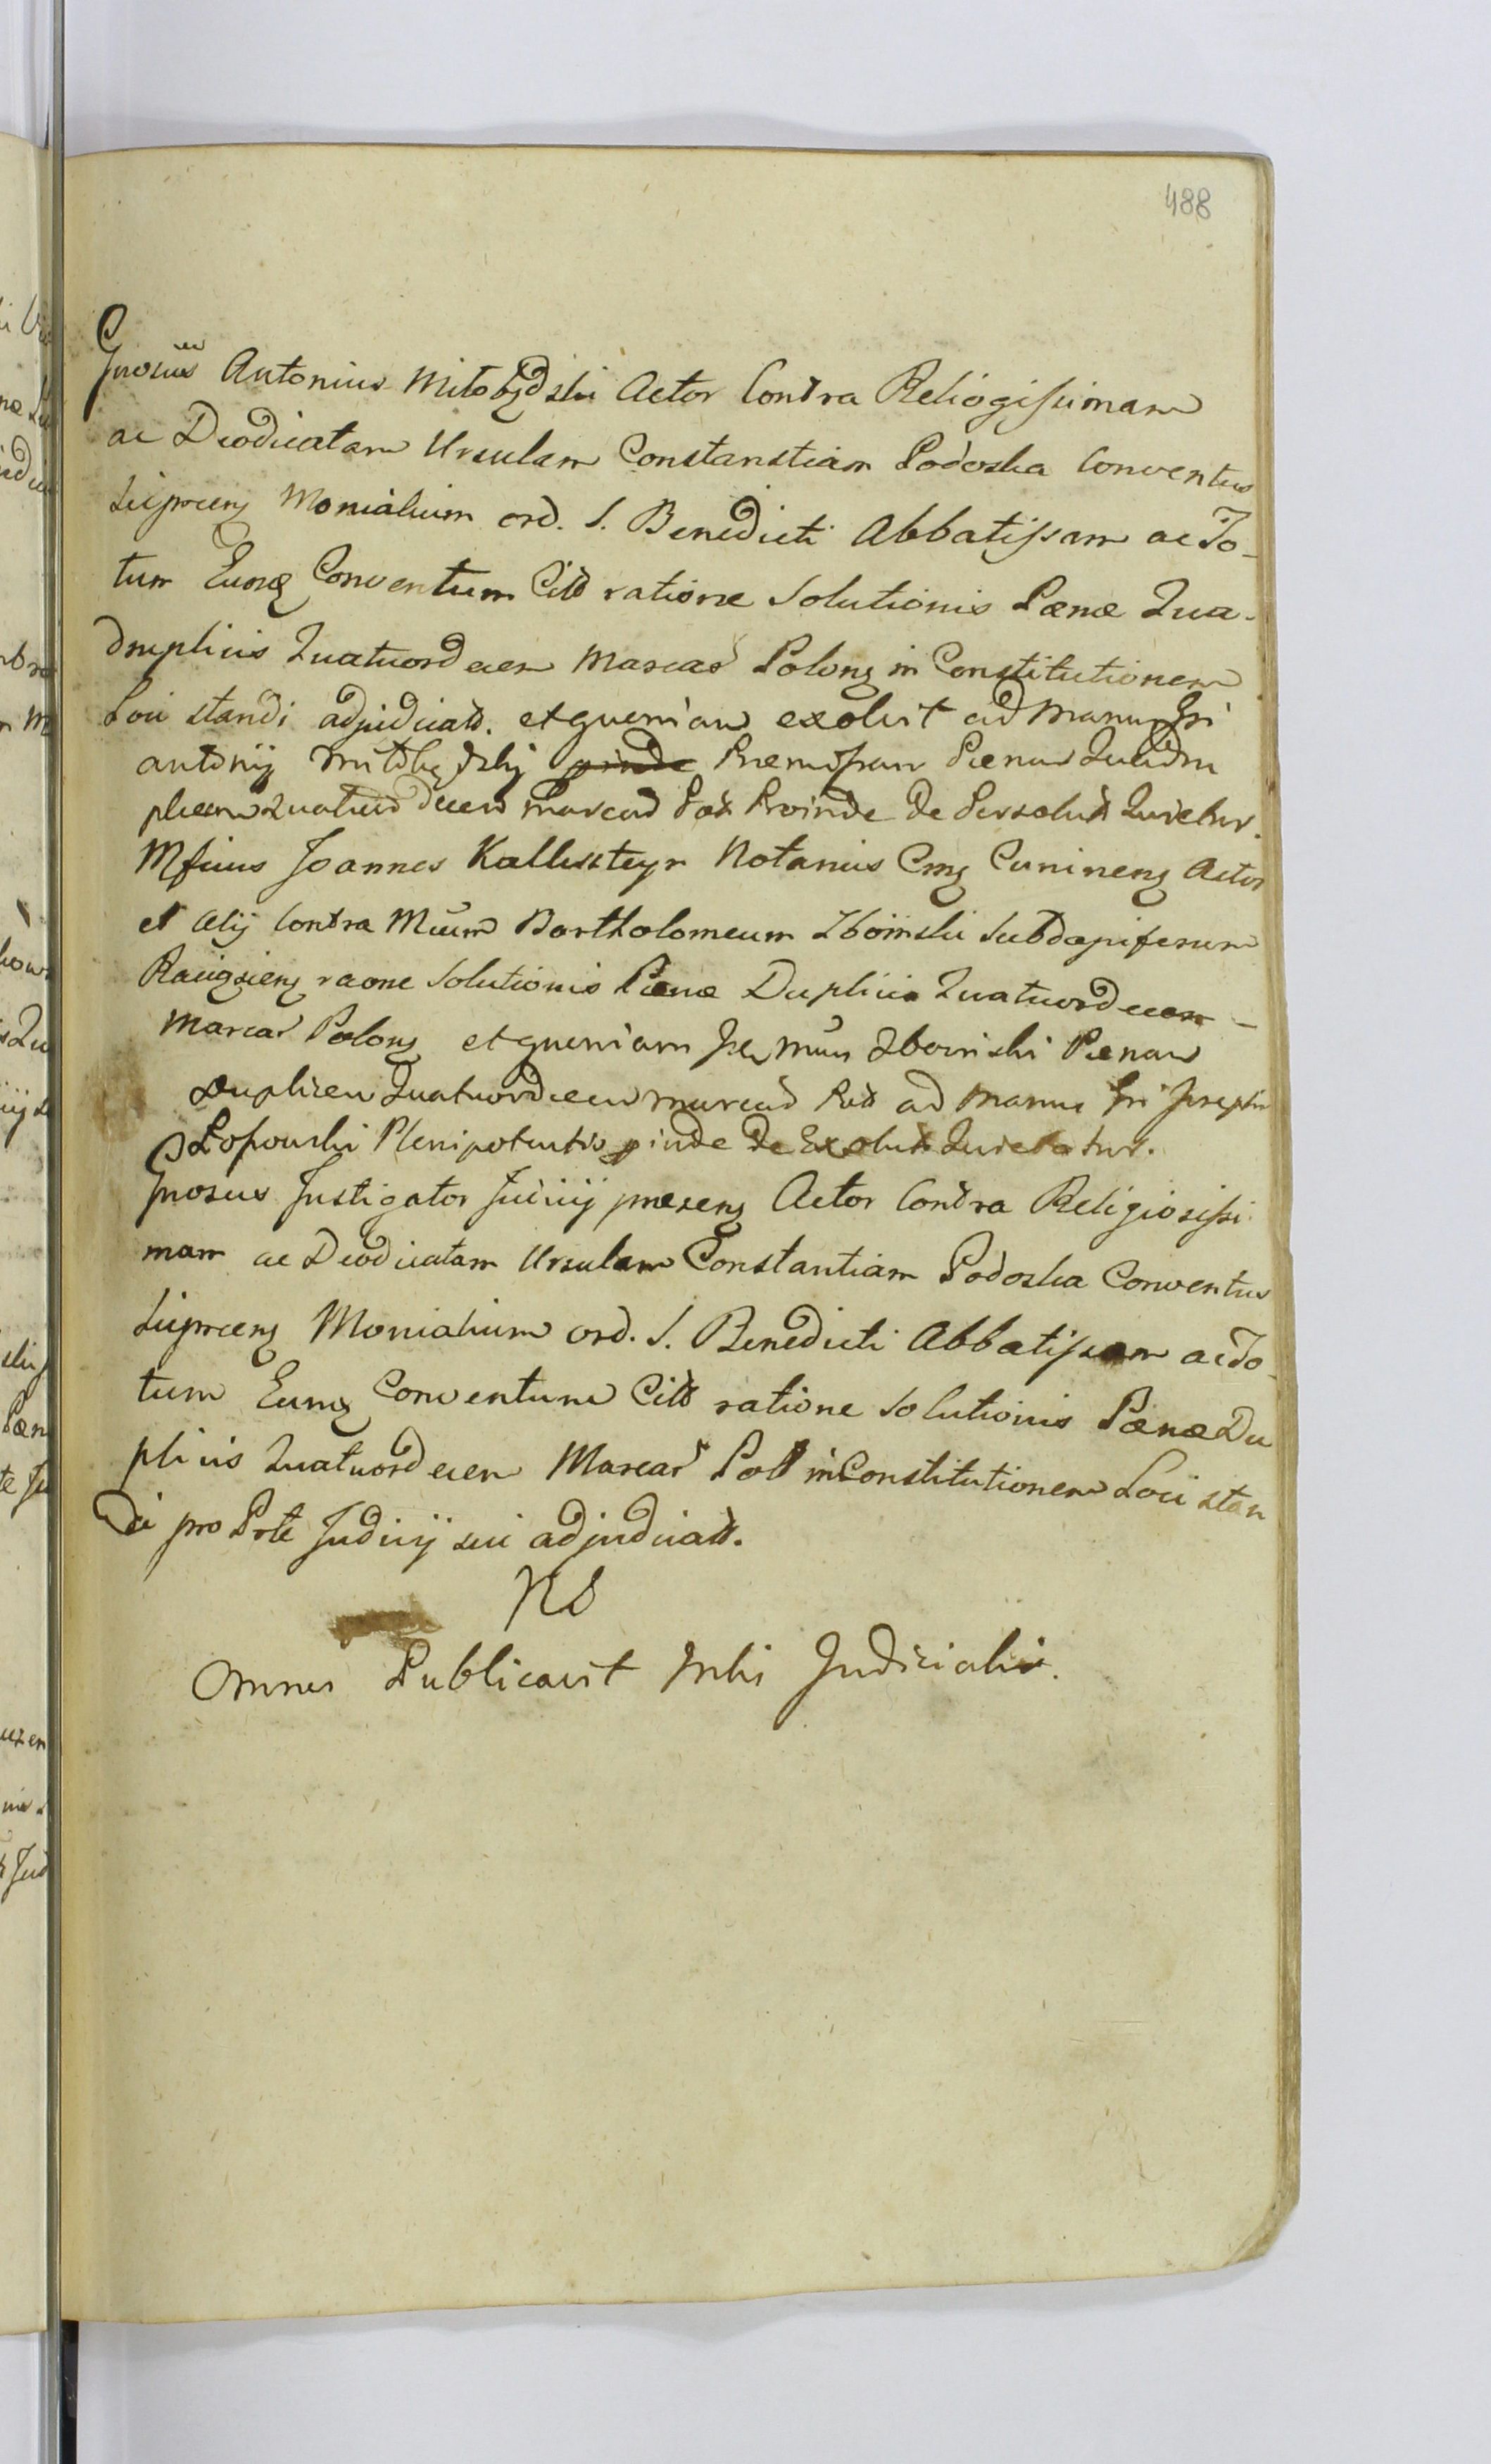 488
Gnosus Antonius Mitobędzki Actor Contra Reliogissimam
ac Deodicatam Ursulam Constanstiam Podoska Conventus
Sieprcens Monialium ord. S. Benedicti Abbatissam ac To-
tum Eumq Conventum Citt ratione Solutionis Pænæ Qua-
druplicis Quatuordecem Marcas Polons in Constitutionem
Loci standi adjudicatt. et quoniam exolvit ad manus Gsi
antonij Mitobędzkij pinde Præmissam Pænam Quadru
plicem quatuordecem marcas Pol Proinde de Persolutt Quietur.
Mficus Joannes Kallissteyn Notarius Cms Cuninens Actor
et Alij Contra Mcum Bartholomeum Zboinski Subdapiferum
Raciąziens raone Solutionis Pænæ Duplicis Quatuordecem -
Marcas Polons et quoniam Mcus Zboinski Pænam
Duplicem Quatuordecem marcas ad manus Gsi Josephi
Łopouski Plenipotentis pinde de Exolutt Quietatur.
Gnosus Instigator Juciij præsens Actor Contra Religiosissi
mam ac Deodicatam Ursulam Constantiam Podoska Conventus
Sieprcens Monialium ord. S. Benedicti Abbatissam ac To
tum Eumq Conventum Citt ratione Solutionis Pænæ Du
plicis Quatuordecem Marcas Poll in Constitutionem Loci stan
di pro Prte Judicij sui adjudicatt.
NS
Omnes Publicavit Mtis Judicialis.